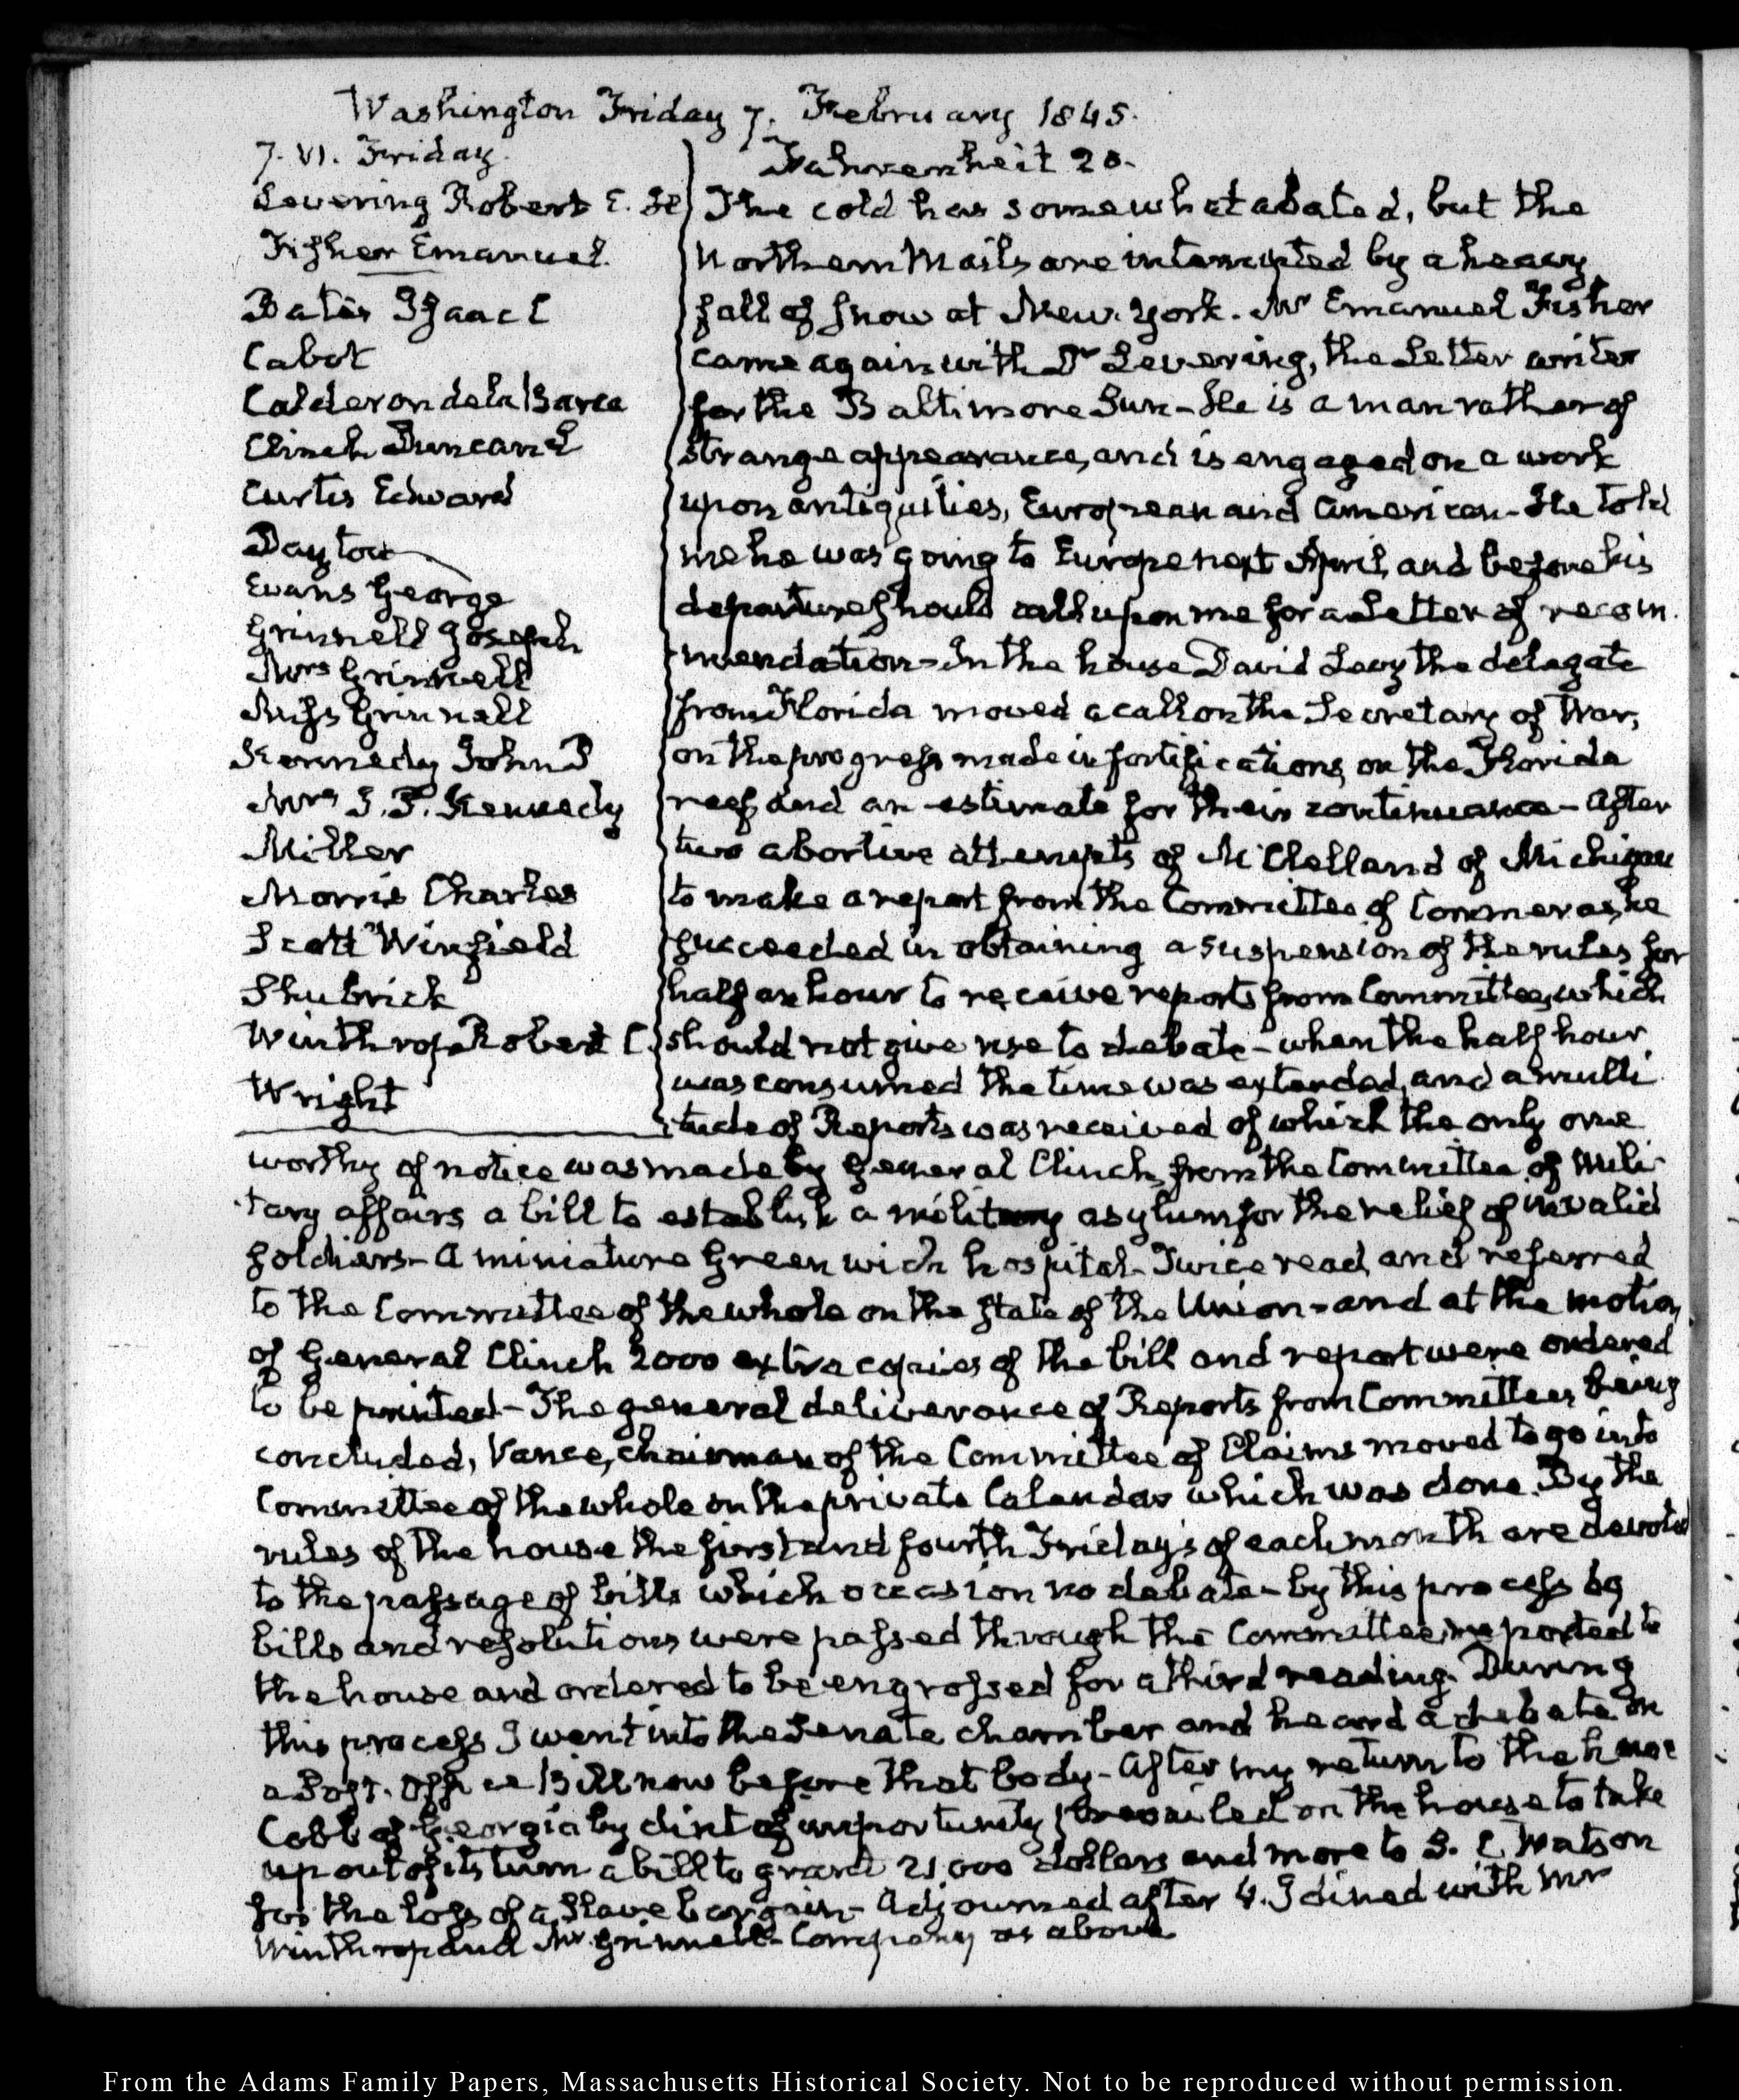 Washington Friday 7. February 1845.
7. VI. Friday.
Levering Robert E. H
Fisher Emanuel.
Bates Isaac C
Cabot
Calderon de la Barca
Clinch Duncan L
Curtis Edward
Dayton
Evans George
Grinnell Joseph
Mrs Grinnell
Miss Grinnell
Kennedy John P
Mrs J. P. Kennedy
Miller
Morris Charles
Scott Winfield
Shubrick
Winthrop Robert C.
Wright
Fahrenheit 20.
The cold has somewhat abated, but the
Northern Mails are interrupted by a heavy
fall of snow at New-York. Mr Emanuel Fisher
came again with Dr Levering, the Letter writer
for the Baltimore Sun - He is a man rather of
strange appearance, and is engaged on a work
upon antiquities, European and American - He told
me he was going to Europe next April, and before his
departure should call upon me for a Letter of recom-
mendation - In the house David Levy the delegate
from Florida moved a call on the Secretary of War,
on the progress made in fortifications on the Florida
reef and an estimate for their continuance - After
two abortive attempts of McClelland of Michigan
to make a report from the Committee of Commerce, he
succeeded in obtaining a suspension of the rules for
half an hour to receive reports from Committees, which
should not give rise to debate - when the half hour
was consumed the time was extended, and a multi-
tude of Reports was received of which the only one
worthy of notice was made by General Clinch, from the Committee of Mili-
tary affairs a bill to establish a military asylum for the relief of invalid
soldiers - A miniature Greenwich hospital - Twice read, and referred
to the Committee of the whole on the state of the Union - and at the motion
of General Clinch 2000 extra copies of the bill and report were ordered
to be printed - The general deliverance of Reports from Committees being
concluded, Vance, chairman of the Committee of Claims moved to go into
Committee of the whole on the private Calendar which was done. By the
rules of the house the first and fourth Friday's of each month are devoted
to the passage of bills which occasion no debate - by this process 69
bills and resolutions were passed through the Committee, reported to
the house and ordered to be engrossed for a third reading. During
this process I went into the Senate chamber and heard a debate on
a Post-Office Bill now before that body - After my return to the house
Cobb of Georgia by dint of importunity prevailed on the house to take
up out of its turn a bill to grant 21,000 dollars and more to S. C. Watson
for the loss of a slave bargain - Adjourned after 4. I dined with Mr
Winthrop and Mr Grinnell - Company as above
From the Adams Family Papers, Massachusetts Historical Society. Not to be reproduced without permission.